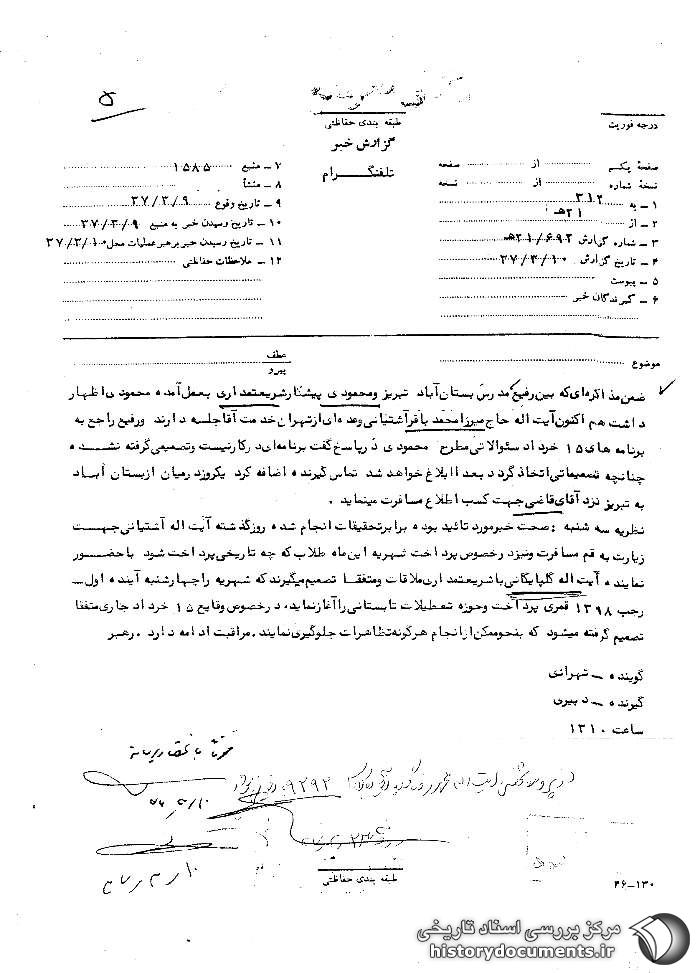 ۵
طبقه بندی حفاظتی
گزارش خبر
تلفنگرام
درجه فوریت
صفحهٔ یکم از صفحه
نسخهٔ شماره از نسخه
۱ ــ به ۳۱۲
۲ ــ از ۲۱هـ
۳ ــ شماره گزارش ۲۱/۶۹۲هـ
۴ ــ تاریخ گزارش ۳۷/۳/۱۰
۵ ــ پیوست
۶ ــ گیرندگان خبر
۷ ــ منبع ۱۵۸۵
۸ ــ منشأ
۹ ــ تاریخ وقوع ۳۷/۳/۹
۱۰ ــ تاریخ رسیدن خبر به منبع ۳۷/۳/۹
۱۱ ــ تاریخ رسیدن خبر برهبر عملیات محل ۳۷/۳/۱۰
۱۲ ــ ملاحظات حفاظتی
موضوع
عطف
پیرو
ضمن مذاکره‌ای که بین رفیع مدرس بستان آباد تبریز و محمودی پیشکار شریعتمداری بعمل آمده محمودی اظهار
داشت هم اکنون آیت اله حاج میرزا محمد باقر آشتیانی وعده‌ای از تهران خدمت آقا جلسه دارند ورفیع راجع به
برنامه های ۱۵ خرداد سئوالاتی مطرح محمودی در پاسخ گفت برنامه‌ای درکار نیست و تصمیمی گرفته نشده
چنانچه تصمیماتی اتخاذ گردد بعدا ابلاغ خواهد شد تماس گیرنده اضافه کرد یکروز درمیان از بستان آباد
به تبریز نزد آقای قاضی جهت کسب اطلاع مسافرت مینماید .
نظریه سه شنبه : صحت خبر مورد تائید بوده برابر تحقیقات انجام شده روز گذشته آیت اله آشتیانی جهت
زیارت به قم مسافرت ونیز درخصوص پرداخت شهریه این ماه طلاب که چه تاریخی پرداخت شود با حضور
نماینده آیت اله گلپایگانی با شریعتمداری ملاقات ومتفقا تصمیم میگیرند که شهریه را چهارشنبه آینده اول ــ
رجب ۱۳۹۸ قمری پرداخت وحوزه تعطیلات تابستانی را آغاز نماید . درخصوص وقایع ۱۵ خرداد جاری متفقا
تصمیم گرفته میشود که بنحو ممکن از انجام هرگونه تظاهرات جلوگیری نمایند . مراقبت ادامه دارد . رهبر
گوینده ــ شهرانی
گیرنده ــ دبیری
ساعت ۱۳۱۰
طبقه بندی حفاظتی
۳۶-۱۳۰
مرکز بررسی اسناد تاریخی
historydocuments.ir